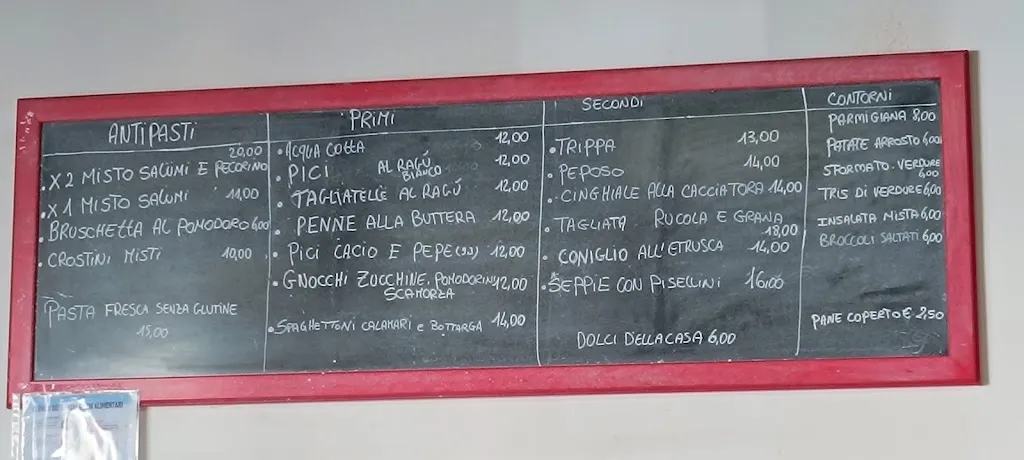 ANTIPASTI
20,00
• X 2 MISTO SALUMI E PECORINO
• X 1 MISTO SALUMI
• BRUSCHETTA AL POMODORO 6,00
• CROSTINI MISTI 10,00
PASTA FRESCA SENZA GLUTINE
15,00
PRIMI
• ACQUA COTTA 12,00
• PICI AL RAGÚ BIANCO 12,00
• TAGLIATELLE AL RAGÚ 12,00
PENNE ALLA BUTTERA 12,00
• PICI CACIO E PEPE 12,00
• GNOCCHI ZUCCHINE, POMODORINI 12,00
SCAMORZA
• SPAGHETTONI CALAMARI E BOTTARGA 14,00
SECONDI
• TRIPPA 13,00
• PEPOSO 14,00
• CINGHIALE ALLA CACCIATORA 14,00
• TAGLIATA RUCOLA E GRANA
18,00
• CONIGLIO ALL'ETRUSCA 14,00
• SEPPIE CON PISELLINI 16,00
DOLCI DELLA CASA 6,00
CONTORNI
PARMIGIANA 8,00
PATATE ARROSTO 6,00
SFORMATO VERDURE
6,00
TRIS DI VERDURE 6,00
INSALATA MISTA 6,00
BROCCOLI SALTATI 6,00
PANE COPERTO € 2,50
ALIMENTARI